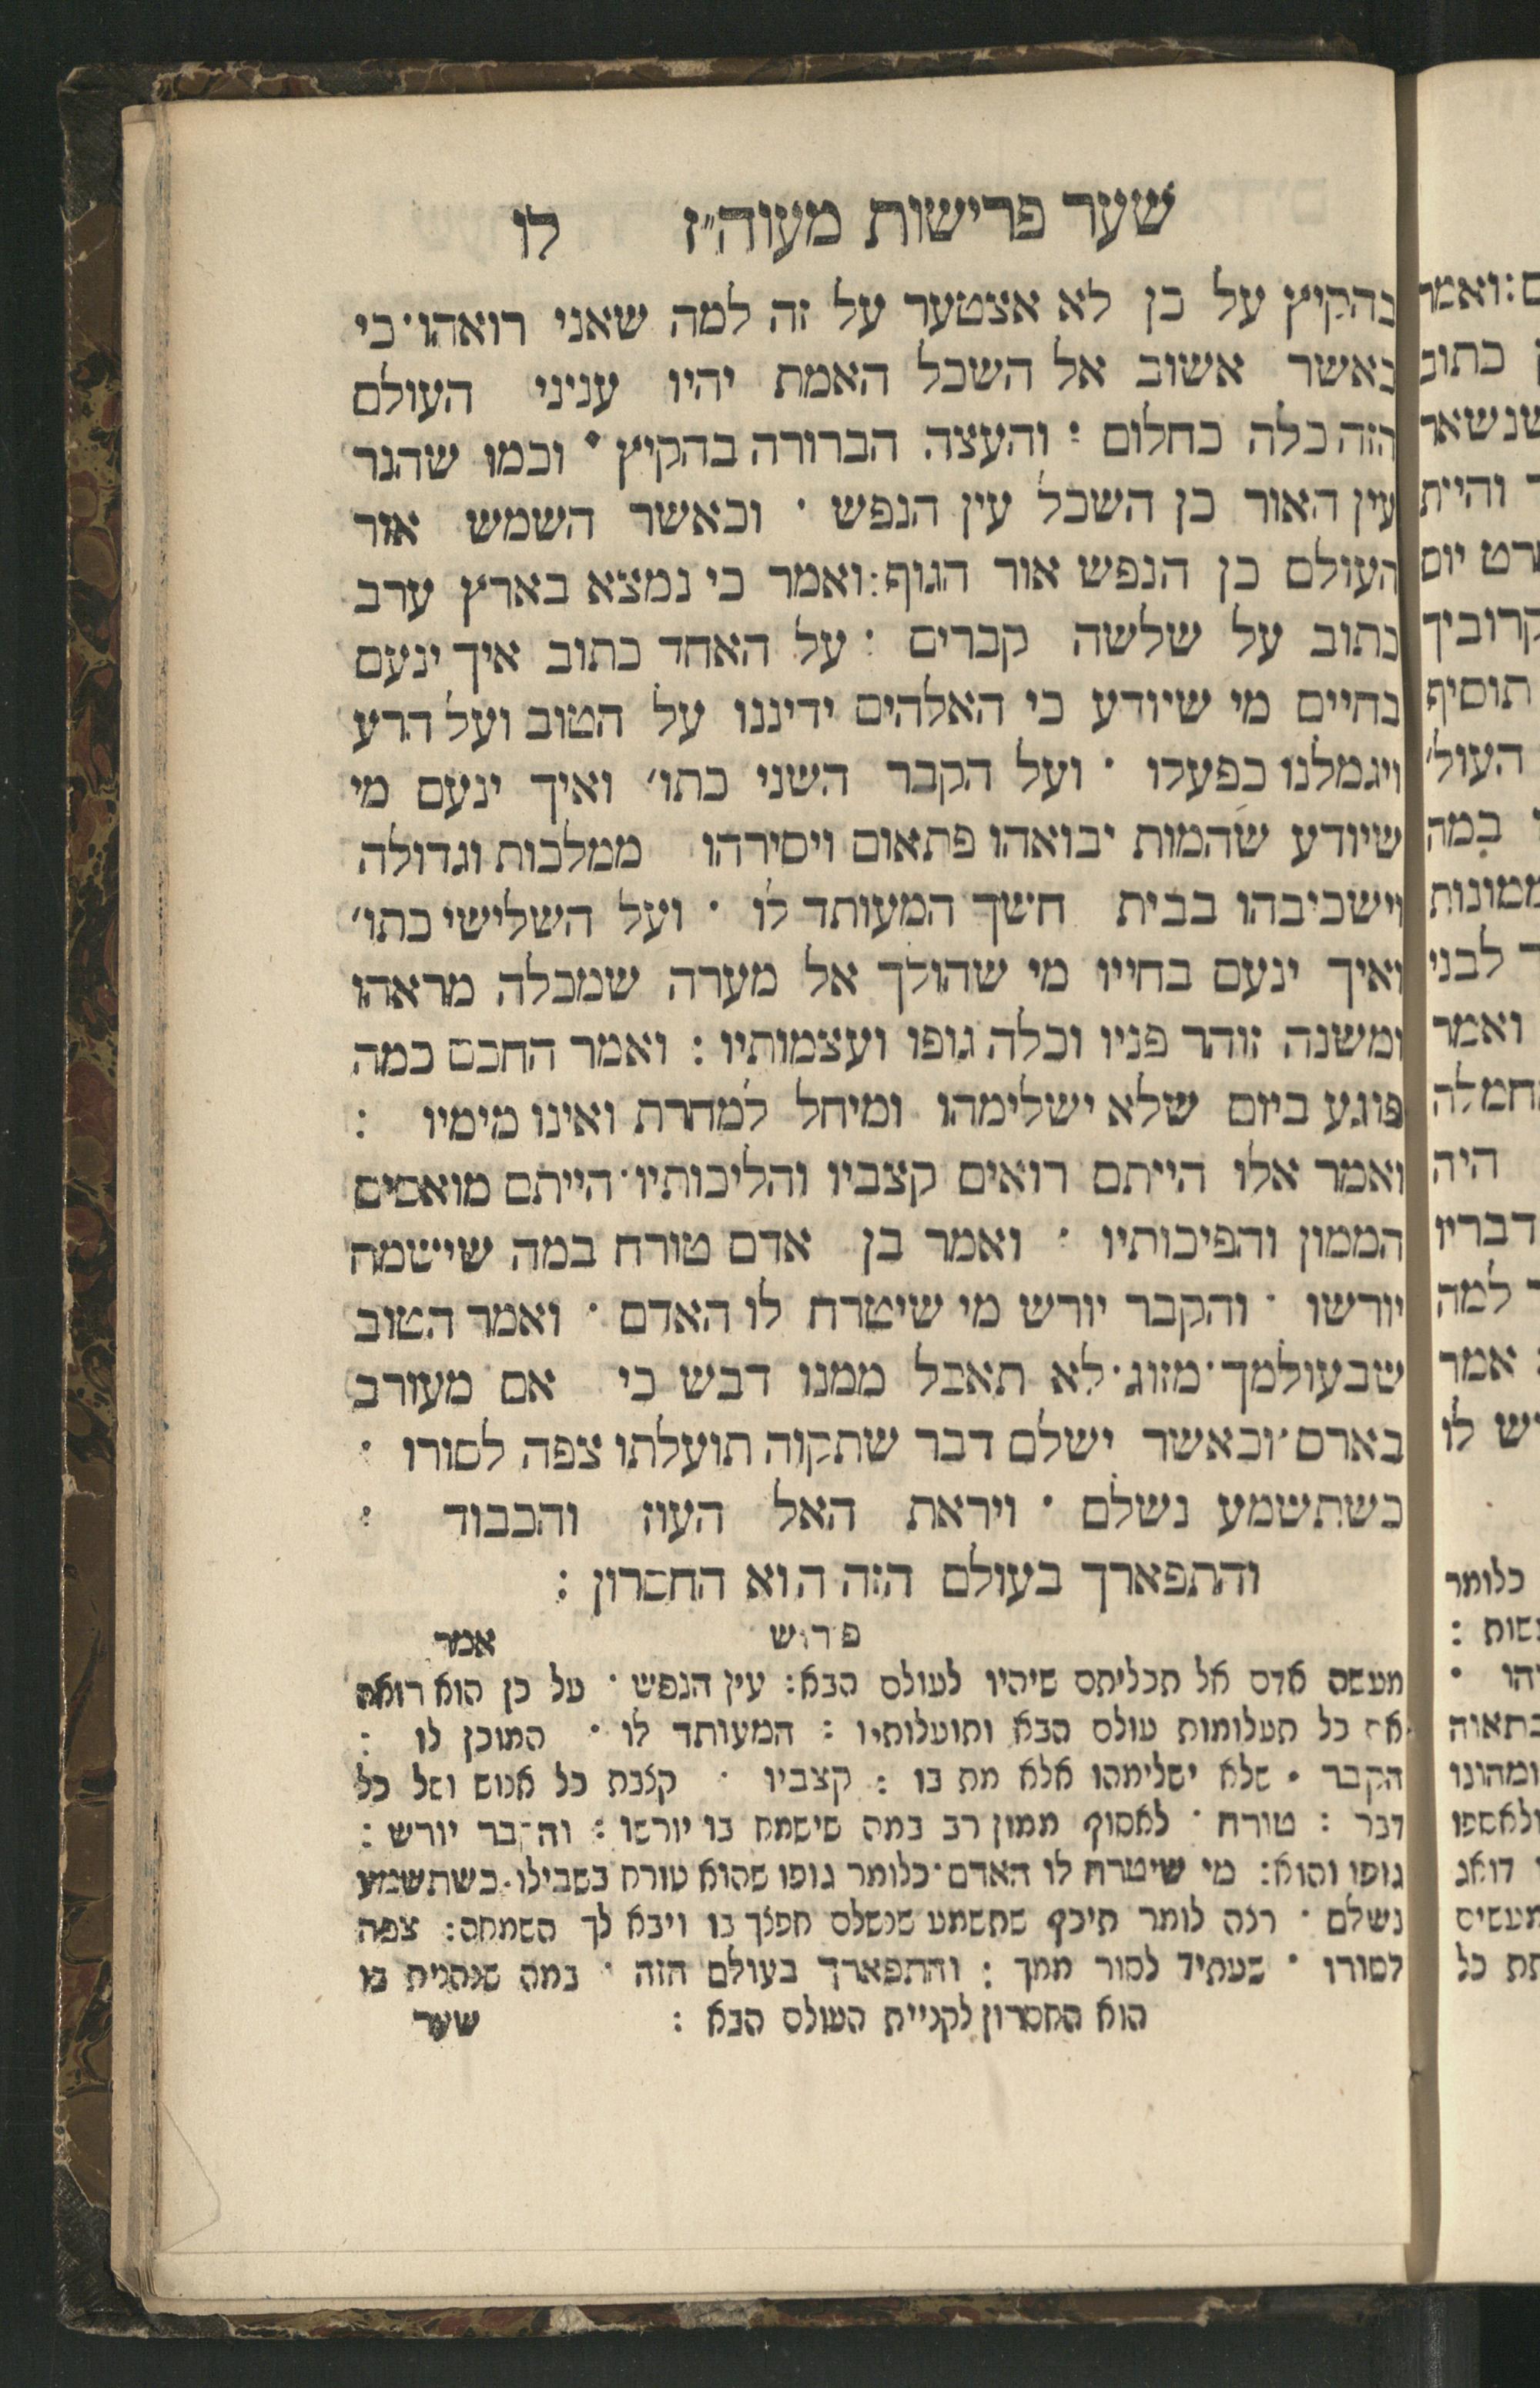 שער פרישות מעוה״ז לו
בהקיץ על כן לא אצטער על זה למה שאני רואהו · כי
כאשר אשוב אל השכל האמת יהיו עניני העולם
הזה כלה כחלום : והעצה הברורה בהקיץ · וכמו שהנר
עין האור כן השכל עין הנפש · וכאשר השמש אור
העולם כן הנפש אור הגוף : ואמר כי נמצא בארץ ערב
כתוב על שלשה קברים : על האחד כתוב איך ינעם
בחיים מי שיודע כי האלהים ידיננו על הטוב ועל הרע
ויגמלנו כפעלו · ועל הקבר השני כתו׳ ואיך ינעם מי
שיודע שהמות יבואהו פתאום ויסירהו ממלכות וגדולה
וישכיבהו בבית חשך המעותד לו · ועל השלישי כתו׳
ואיך ינעם בחייו מי שהולך אל מערה שמכלה מראהו
ומשנה זוהר פניו וכלה גופו ועצמותיו : ואמר החכם כמה
פוגע ביום שלא ישלימהו ומיחל למחרת ואינו מימיו :
ואמר אלו הייתם רואים קצביו והליכותיו · הייתם מואסים
הממון והפיכותיו : ואמר בן אדם טורח במה שישמח
יורשו · והקבר יורש מי שיטרח לו האדם · ואמר הטוב
שבעולמך · מזוג · לא תאכל ממנו דבש כי אם מעורב
בארס · וכאשר ישלם דבר שתקוה תועלתו צפה לסורו :
כשתשמע נשלם · ויראת האל העוז והכבוד :
והתפארך בעולם הזה הוא החסרון :
פרוש אמר
מעשה אדם אל תכליתם שיהיו לעולם הבא : עין הנפש · על כן הוא רואה
את כל תעלומות עולם הבא ותועלותיו : המעותד לו · המוכן לו :
הקבר · שלא ישלימהו אלא מת בו : קצביו · קצבת כל אנוש ושל כל
דבר : טורח · לאסוף ממון רב במה שישמח בו יורשו : והקבר יורש :
גופו והוא : מי שיטרח לו האדם · כלומר גופו שהוא טורח בשבילו · כשתשמע
נשלם · רצה לומר תיכף שתשמע שנשלם חפצך בו ויבא לך השמחה : צפה
לסורו · שעתיד לסור ממך : והתפארך בעולם הזה · במה שנהנית בו
הוא החסרון לקניית העולם הבא : שער